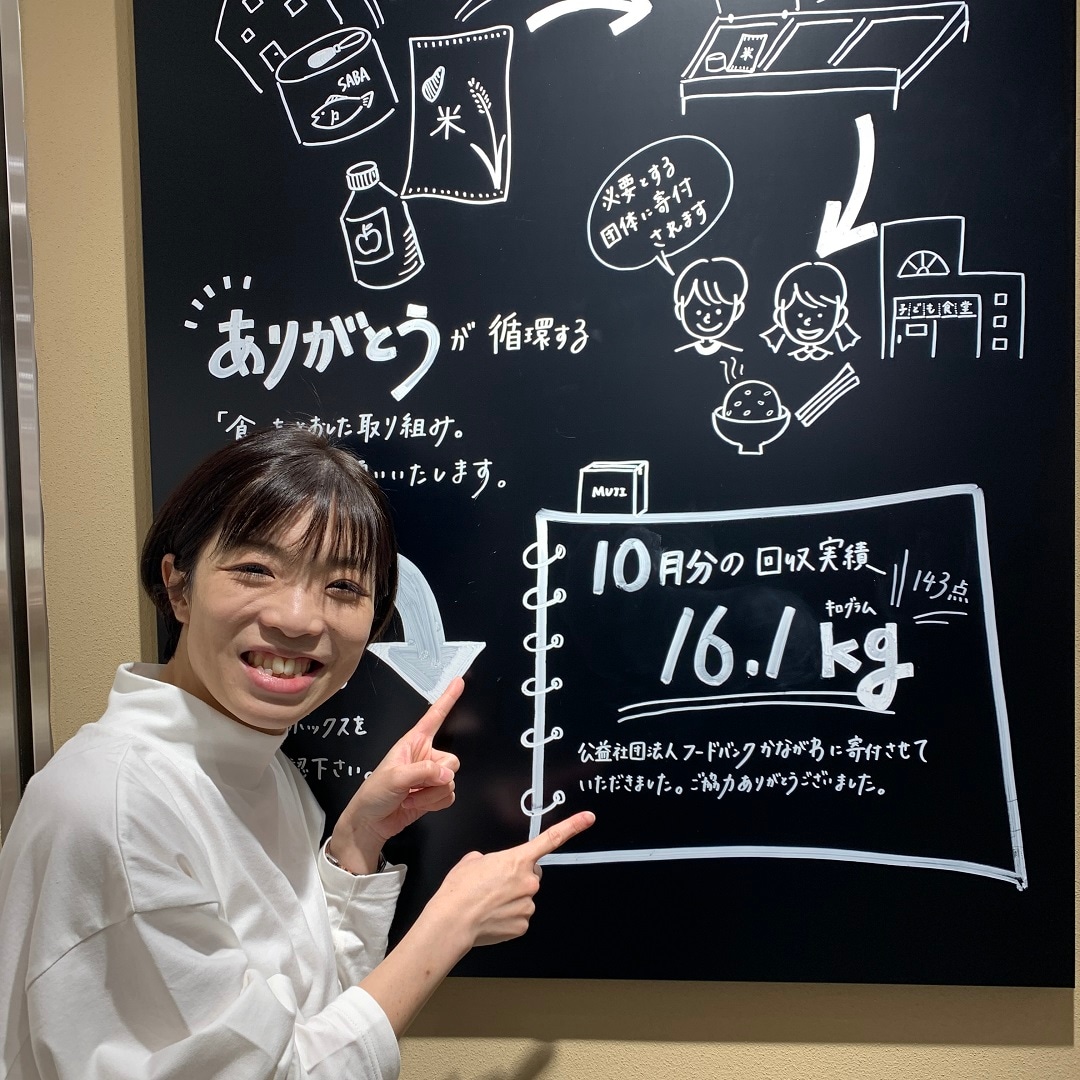 SABA
米
米
必要とする
団体に寄付
されます
子ども食堂
ありがとうが循環する
「食
した取り組み。
いいたします。
MUJI
10月分の回収実績
143点
キログラム
16.1kg
公益社団法人フードバンクかながわに寄付させて
いただきました。ご協力ありがとうございました。
ボックスを
認下さい。